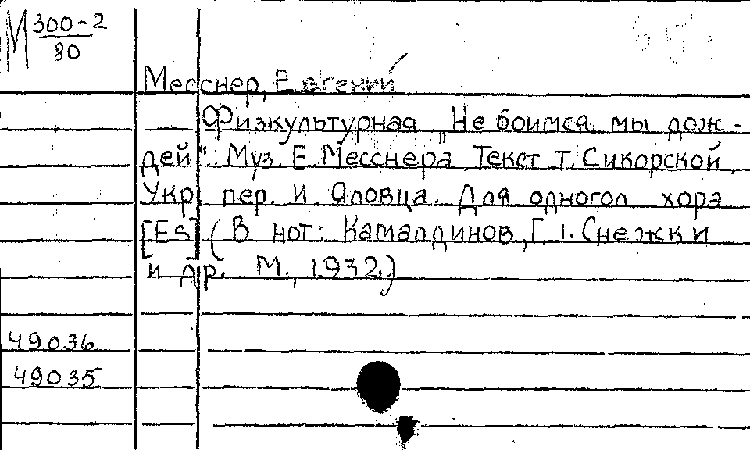 М 300-2
80
Месснер, Евгений
Физкультурная „Не боимся мы дож-
дей". Муз. Е. Месснера Текст Т. Сикорской.
Укр. пер. И. Словца. Для одногол. хора
[Es] (В нот: Камалдинов, Г. 1. Снежки
и др. М., 1932.)
49036
49035